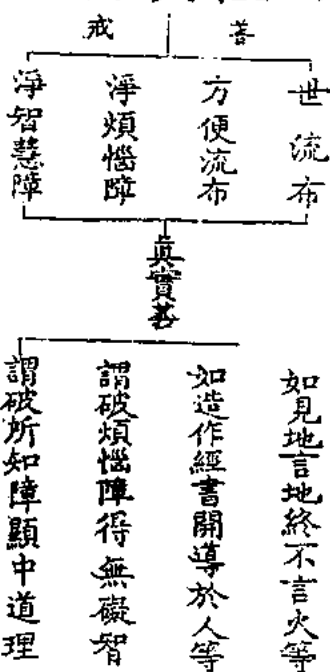 善
戒
世流布
方便流布
淨煩惱障
淨智慧障
眞實義
如見地言地終不言火等
如造作經書開導於人等
謂破煩惱障得無礙智
謂破所知障顯中道理